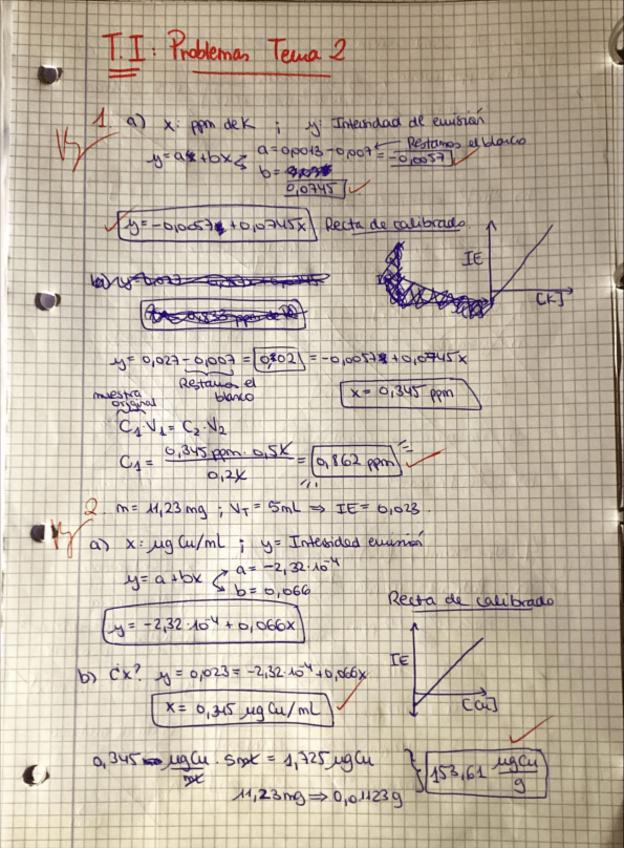 T.I: Problemas Tema 2
1. a) x: ppm de K ; y: Intensidad de emisión
y = a + bx a = 0,0013 - 0,007 = -0,0057 ← Restamos el blanco
b =
0,0745
y = -0,0057 + 0,0745x Recta de calibrado
IE
[K]
y = 0,027 - 0,007 = 0,02 = -0,0057 + 0,0745x
Restamos el blanco
x = 0,345 ppm
muestra original
C1·V1 = C2·V2
C1 = 0,345 ppm · 0,5 / 0,2 = 0,862 ppm
2. m = 11,23 mg ; VT = 5mL ⇒ IE = 0,023.
a) x: µg Cu/mL ; y = Intesidad emisión
y = a + bx a = -2,32·10⁻⁴
b = 0,066
Recta de calibrado
y = -2,32·10⁻⁴ + 0,066x
IE
[Cu]
b) ¿x? y = 0,023 = -2,32·10⁻⁴ + 0,066x
x = 0,345 µg Cu/mL
0,345 µg Cu/mL · 5mL = 1,725 µg Cu
11,23 mg ⇒ 0,01123 g
153,61 µg Cu/g